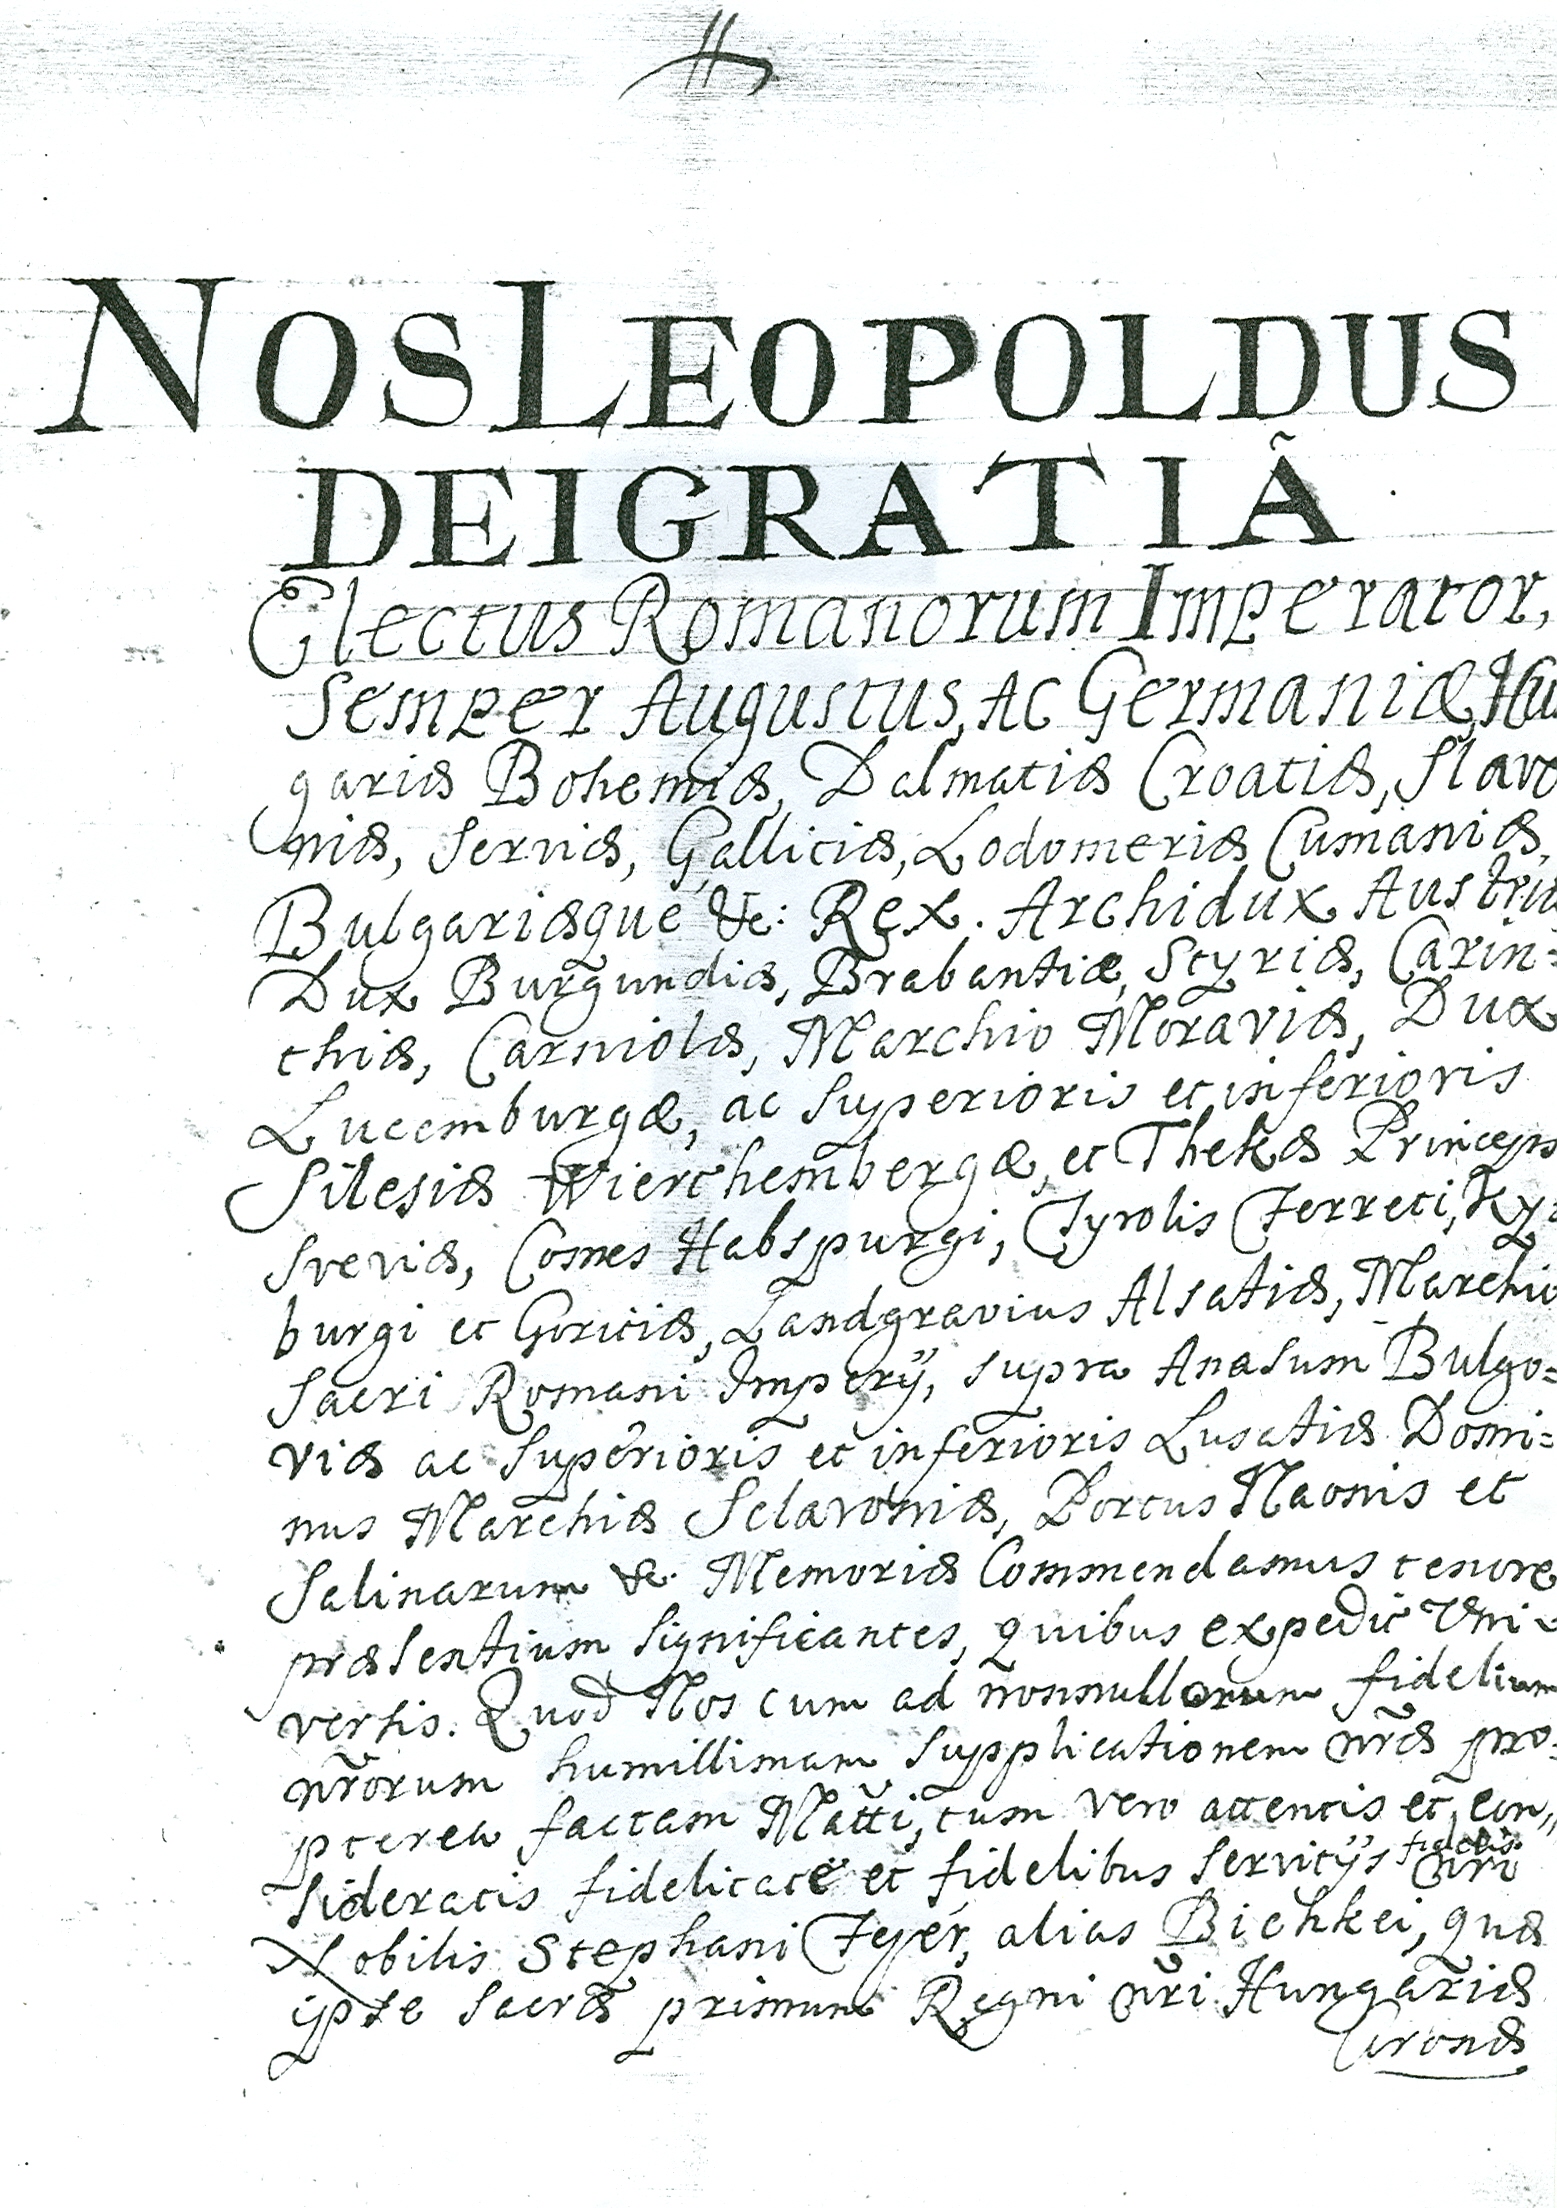 NOS LEOPOLDUS
DEI GRATIÃ
Electus Romanorum Imperator,
Semper Augustus, Ac Germaniæ, Hu
gariæ Bohemiæ, Dalmatiæ Croatiæ, Slavo
niæ, Serviæ, Galliciæ, Lodomeriæ Cumaniæ,
Bulgariæque &c: Rex. Archidux Austriæ
Dux Burgundiæ, Brabantiæ, Styriæ, Carin=
thiæ, Carniolæ, Marchio Moraviæ, Dux
Lucemburgæ, ac Superioris et inferioris
Silesiæ Wierthembergæ, et Thekæ Princeps
Sveviæ, Comes Habspurgi, Tyrolis Ferreti, Ky
burgi et Goritiæ, Landgravius Alsatiæ, Marchio
Sacri Romani Imperÿ, supra Anasum Bulgo=
viæ ac Superioris et inferioris Lusatiæ Domi=
nus Marchiæ Sclavoniæ, Portus Naonis et
Salinarum &c. Memoriæ Commendamus tenore
præsentium significantes, quibus expedit Vni-
versis. Quod Nos cum ad nonnullorum fidelium
nr̃orum humillimam supplicationem nr̃æ pro-
pterea factam Mat̃ti, tum vero attentis et con„
sideratis fidelitate et fidelibus servitÿs fidelis nr̃i
Nobilis Stephani Fejér, alias Bichkei, quæ
ipse sacræ primum Regni nr̃i Hungariæ
Coronæ